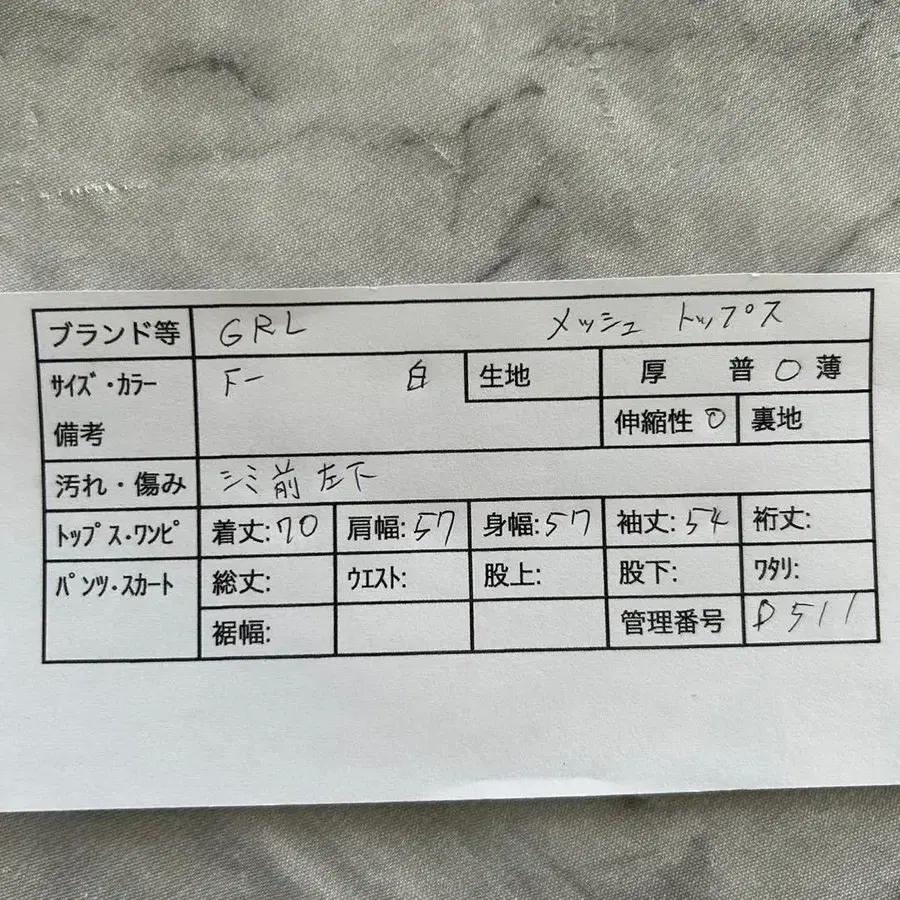 ブランド等 GRL メッシュ トップス
ｻｲｽﾞ･ｶﾗｰ F- 白 生地 厚 普 〇 薄
備考 伸縮性 〇 裏地
汚れ・傷み シミ前左下
ﾄｯﾌﾟｽ･ﾜﾝﾋﾟ 着丈:70 肩幅:57 身幅:57 袖丈:54 裄丈:
ﾊﾟﾝﾂ･ｽｶｰﾄ 総丈: ｳｴｽﾄ: 股上: 股下: ﾜﾀﾘ:
裾幅: 管理番号 D511